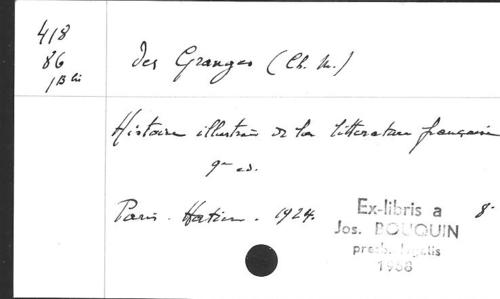 418
86
1 B
des Granges (Ch. M.)
Histoire illustrée de la littérature française
9e ed.
Paris. Hatier. 1924. 8°
Ex-libris a
Jos. BOUQUIN
presb.
1968